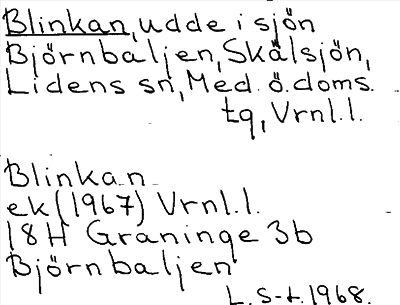 Blinkan, udde i sjön
Björnbaljen, Skålsjön,
Lidens sn, Med. ö. doms.
tg, Vrnl.l.
Blinkan
ek (1967) Vrnl.l.
18H Graninge 3b
Björnbaljen
L. S-t. 1968.